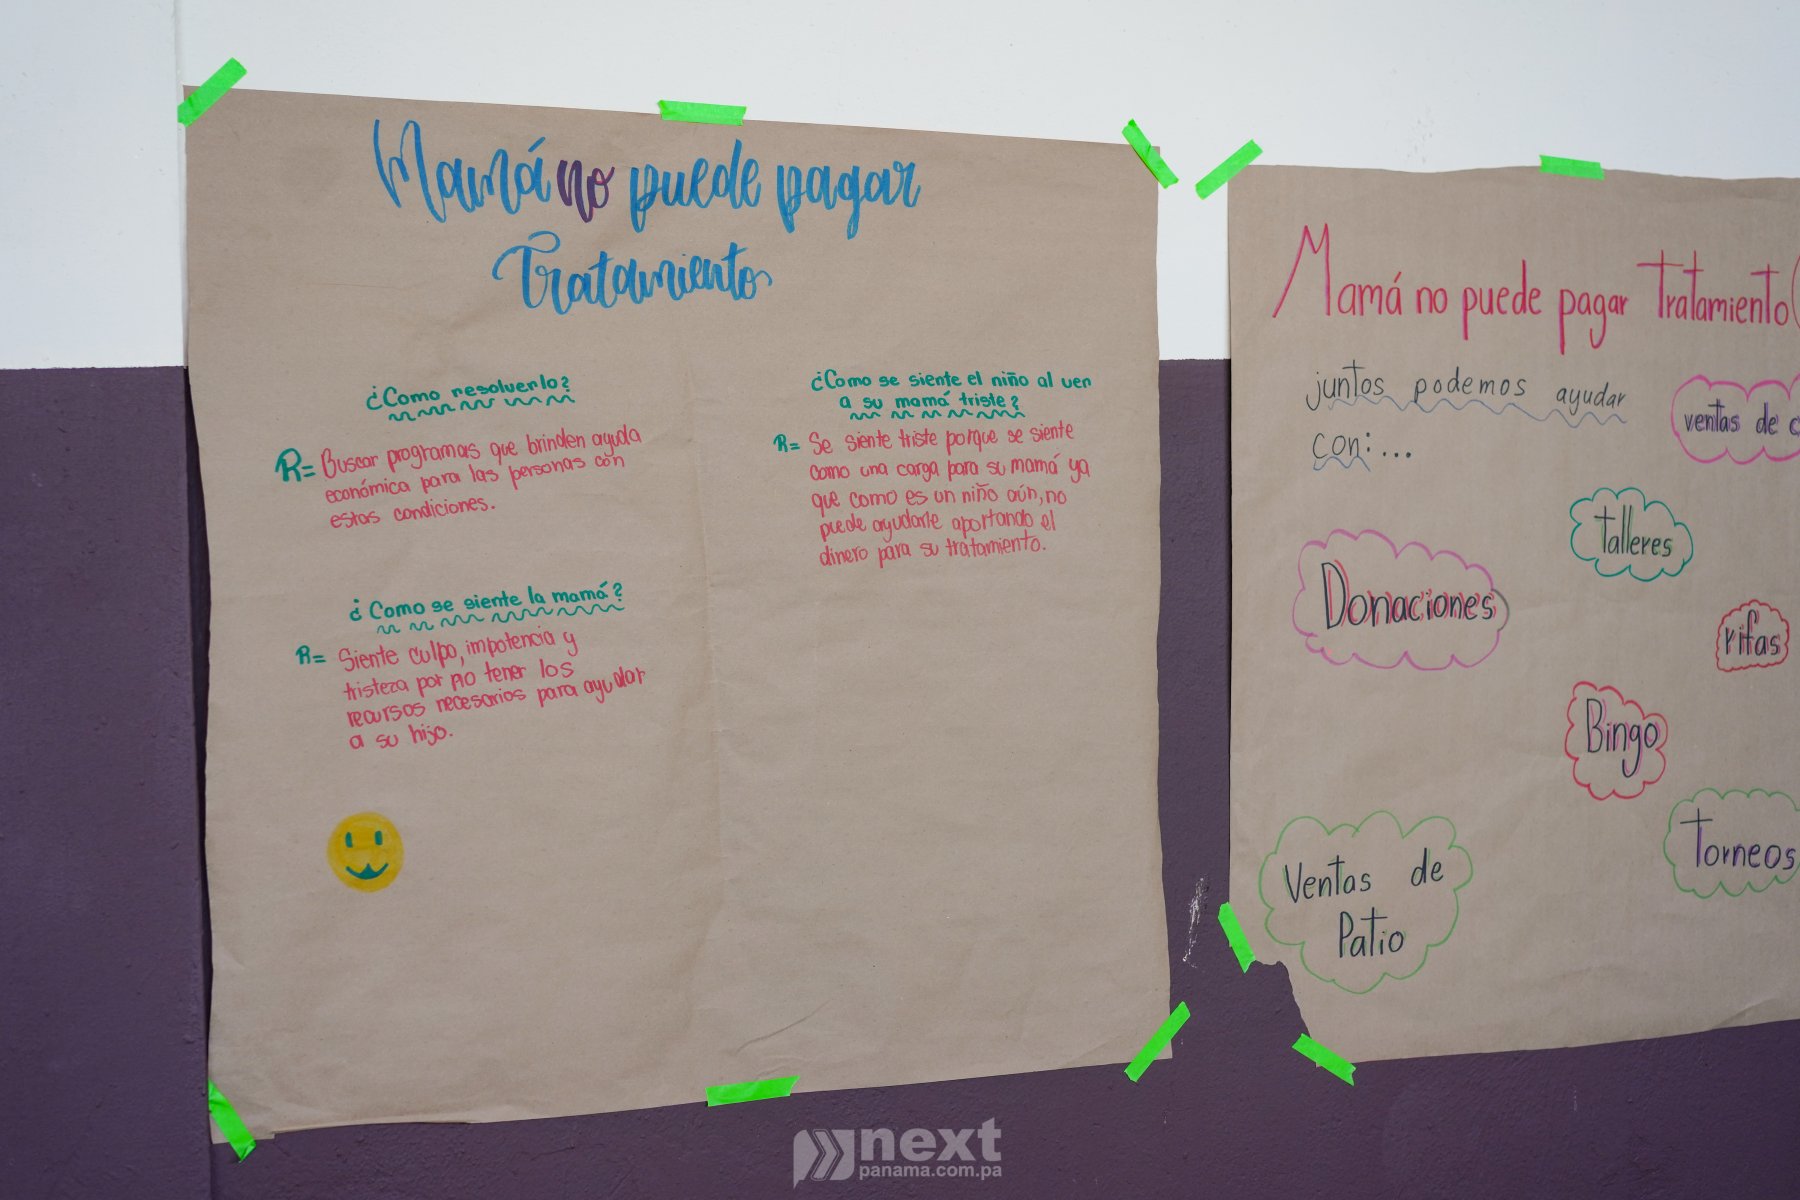 Mamá no puede pagar
Tratamiento
¿Como resolverlo?
R= Buscar programas que brinden ayuda
económica para las personas con
estas condiciones.
¿Como se siente la mamá?
R= Siente culpa, impotencia y
tristeza por no tener los
recursos necesarios para ayudar
a su hijo.
¿Como se siente el niño al ver
a su mamá triste?
R= Se siente triste porque se siente
como una carga para su mamá ya
que como es un niño aún, no
puede ayudarle aportando el
dinero para su tratamiento.
Mamá no puede pagar Tratamiento
juntos podemos ayudar
con:...
ventas de
talleres
Donaciones
rifas
Bingo
Torneos
Ventas de
Patio
next
panama.com.pa